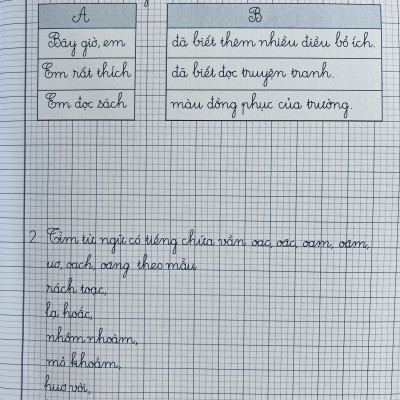 A B
Bây giờ, em đã biết thêm nhiều điều bổ ích.
Em rất thích đã biết đọc truyện tranh.
Em đọc sách màu đồng phục của trường.
2 Tìm từ ngữ có tiếng chứa vần oac, oăc, oam, oăm,
uơ, oach, oăng theo mẫu
rách toạc,
lạ hoắc,
nhồm nhoàm,
mỏ khoằm,
huơ vòi,